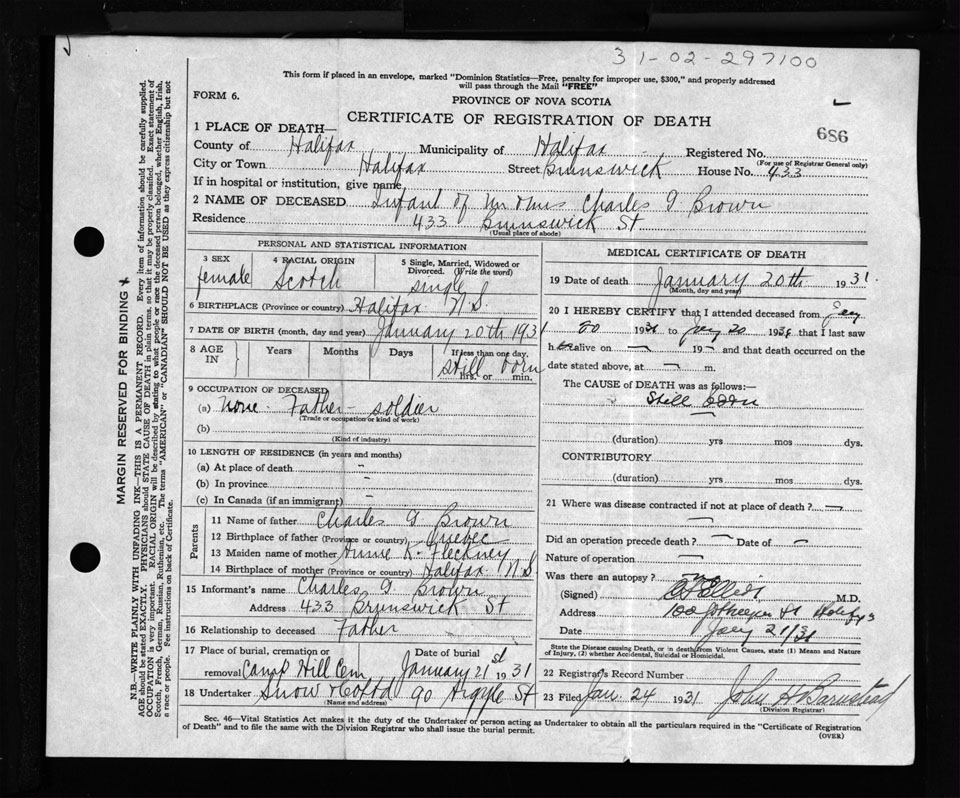 31-02-297100
This form if placed in an envelope, marked "Dominion Statistics—Free, penalty for improper use, $300," and properly addressed
will pass through the Mail "FREE"
FORM 6.
PROVINCE OF NOVA SCOTIA
CERTIFICATE OF REGISTRATION OF DEATH
686
1 PLACE OF DEATH—
County of Halifax Municipality of Halifax Registered No.
(For use of Registrar General only)
City or Town Halifax Street Brunswick House No. 433
If in hospital or institution, give name
2 NAME OF DECEASED Infant of Mr & Mrs Charles G Brown
Residence 433 Brunswick St
(Usual place of abode)
PERSONAL AND STATISTICAL INFORMATION
3 SEX female
4 RACIAL ORIGIN Scotch
5 Single, Married, Widowed or
Divorced. (Write the word)
single
6 BIRTHPLACE (Province or country) Halifax N.S.
7 DATE OF BIRTH (month, day and year) January 20th 1931
8 AGE IN Years Months Days If less than one day,
still born
hrs. or min.
9 OCCUPATION OF DECEASED
(a) None. Father - soldier
(Trade or occupation or kind of work)
(b)
(Kind of industry)
10 LENGTH OF RESIDENCE (in years and months)
(a) At place of death -
(b) In province -
(c) In Canada (if an immigrant) -
Parents
11 Name of father Charles G Brown
12 Birthplace of father (Province or country) Quebec
13 Maiden name of mother Annie K. Fleckney
14 Birthplace of mother (Province or country) Halifax N.S
15 Informant's name Charles G. Brown
Address 433 Brunswick St
16 Relationship to deceased Father
17 Place of burial, cremation or Date of burial
removal Camp Hill Cem January 21st 1931
18 Undertaker Snow & Co Ltd 90 Argyle St
(Name and address)
MEDICAL CERTIFICATE OF DEATH
19 Date of death January 20th 1931
(Month, day and year)
20 I HEREBY CERTIFY that I attended deceased from
20 1931 to 20 1931 that I last saw
h alive on — 19 — and that death occurred on the
date stated above, at — m.
The CAUSE of DEATH was as follows:
Still born
—
(duration) yrs mos dys.
CONTRIBUTORY
(duration) yrs mos dys.
21 Where was disease contracted if not at place of death? —
—
Did an operation precede death? — Date of —
Nature of operation —
Was there an autopsy? no
(Signed) M.D.
Address 100 St Halifax
Date 21/31
State the Disease causing Death, or in deaths from Violent Causes, state (1) Means and Nature
of Injury, (2) whether Accidental, Suicidal or Homicidal.
22 Registrar's Record Number
23 Filed Jan. 24 1931 John H Barnstead
(Division Registrar)
Sec. 46—Vital Statistics Act makes it the duty of the Undertaker or person acting as Undertaker to obtain all the particulars required in the "Certificate of Registration
of Death" and to file the same with the Division Registrar who shall issue the burial permit.
(OVER)
MARGIN RESERVED FOR BINDING
N.B.—WRITE PLAINLY WITH UNFADING INK—THIS IS A PERMANENT RECORD. Every item of information should be carefully supplied.
AGE should be stated EXACTLY. PHYSICIANS should STATE CAUSE OF DEATH in plain terms, so that it may be properly classified. Exact statement of
OCCUPATION is very important. RACIAL ORIGIN will be described by stating to what people or race the deceased person belonged, whether English, Irish,
Scotch, French, German, Russian, Ruthenian, etc. The terms "AMERICAN" or "CANADIAN" SHOULD NOT BE USED as they express citizenship but not
a race or people. See instructions on back of Certificate.